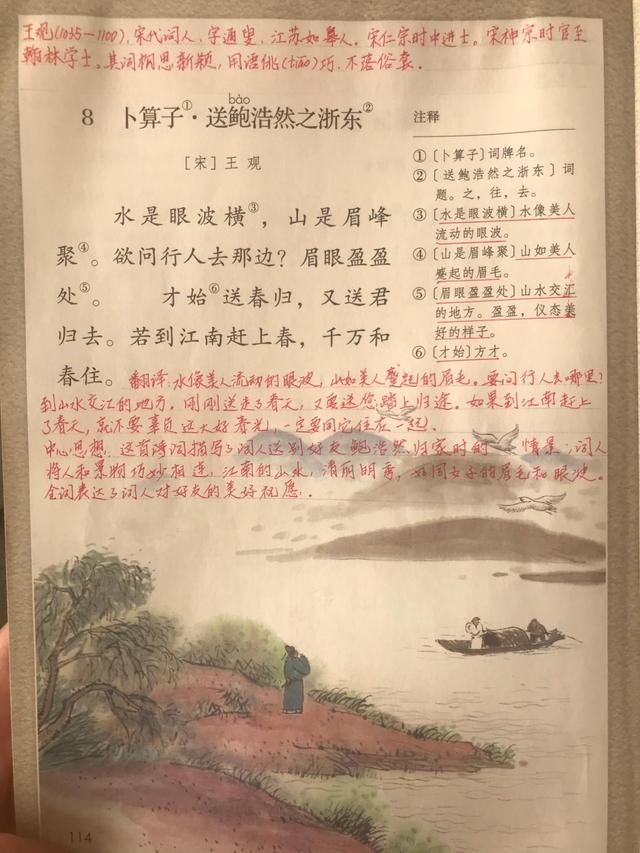 王观(1035—1100),宋代词人,字通叟,江苏如皋人。宋仁宗时中进士。宋神宗时官至
翰林学士。其词构思新颖,用语佻(tiāo)巧,不落俗套。
bào
8 卜算子①·送鲍浩然之浙东②
[宋]王 观
水是眼波横③,山是眉峰
聚④。欲问行人去那边?眉眼盈盈
处⑤。 才始⑥送春归,又送君
归去。若到江南赶上春,千万和
春住。
注释
①〔卜算子〕词牌名。
②〔送鲍浩然之浙东〕词
题。之,往,去。
③〔水是眼波横〕水像美人
流动的眼波。
④〔山是眉峰聚〕山如美人
蹙起的眉毛。
⑤〔眉眼盈盈处〕山水交汇
的地方。盈盈,仪态美
好的样子。
⑥〔才始〕方才。
翻译:水像美人流动的眼波,山如美人蹙起的眉毛。要问行人去哪里?
到山水交汇的地方。刚刚送走了春天,又要送您踏上归途。如果到江南赶上
了春天,就不要辜负这大好春光,一定要同它住在一起。
中心思想:这首诗词描写了词人送别好友鲍浩然归家时的情景,词人
将人和景物巧妙相连,江南的山水,清丽明秀,好同女子的眉毛和眼波。
全词表达了词人对好友的美好祝愿。
114